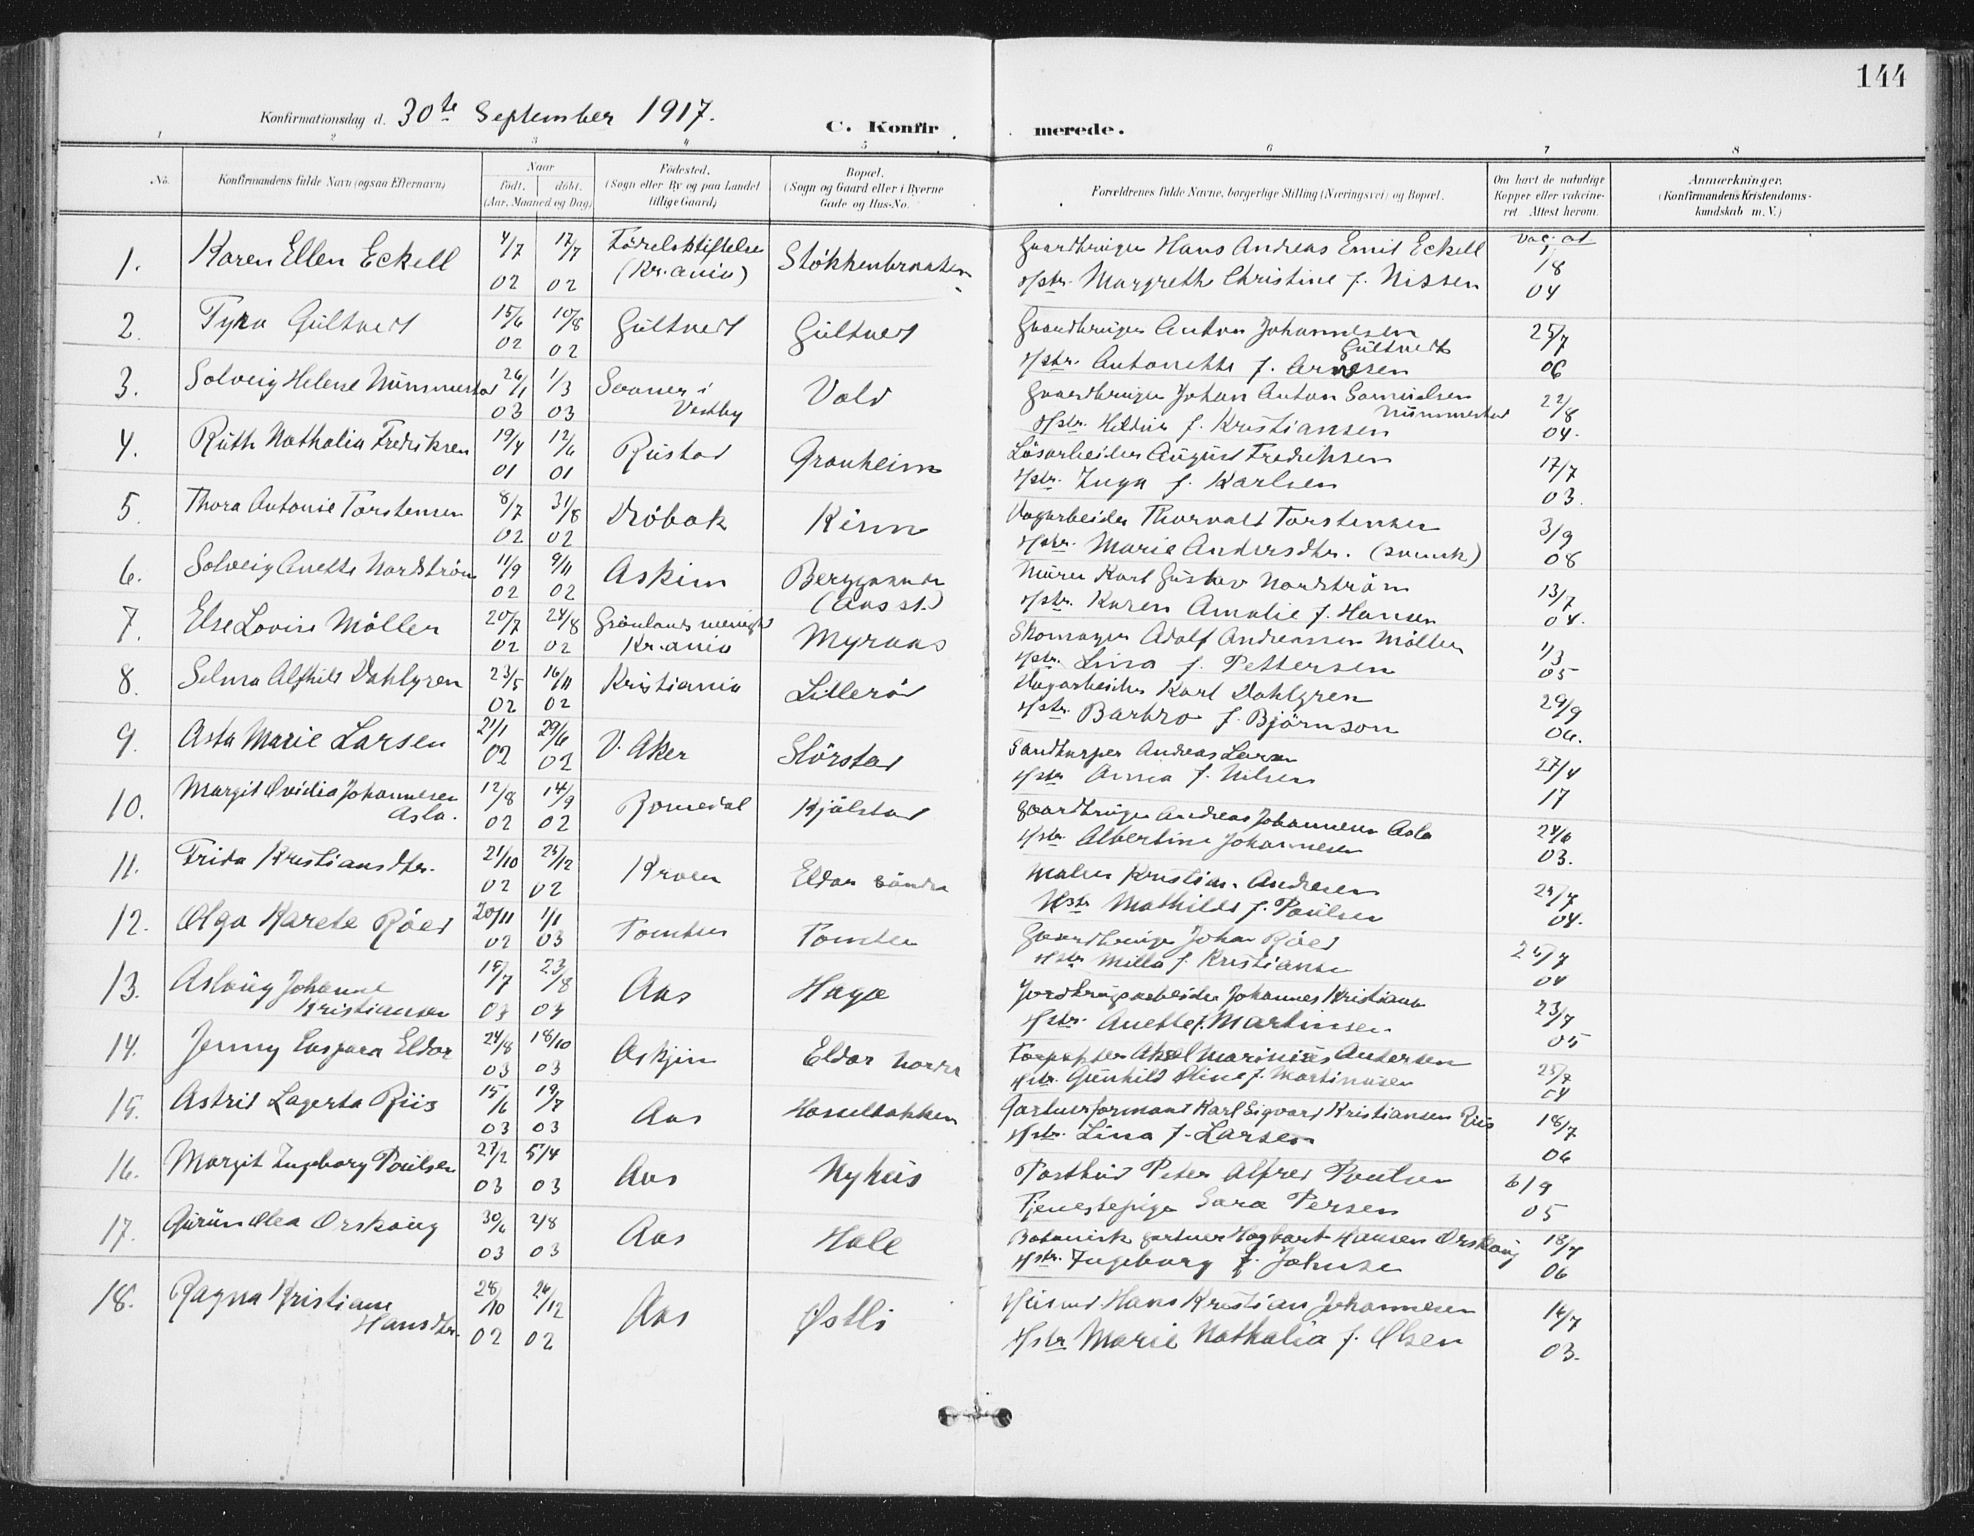 144
Konfirmationsdag d. 30te September 1917.
C. Konfirmerede.
1 2 3 4 5 6 7 8
No. Konfirmandens fulde Navn (ogsaa Efternavn) Naar født. døbt. (Aar, Maaned og Dag) Fødested. (Sogn eller By og paa Landet tillige Gaard) Bopæl. (Sogn og Gaard eller i Byerne Gade og Hus-No. Forældrenes fulde Navne, borgerlige Stilling (Næringsvei) og Bopæl. Om havt de naturlige Kopper eller vaccineret. Attest herom. Anmærkninger. (Konfirmandens Kristendomskundskab m. V.)
1. Karen Ellen Eckell 4/7 02 17/7 02 Födelsstiftelse (Kr.ania) Stökkenbraaten Gaardbruger Hans Andreas Emil Eckell
Hstr. Margrethe Christine f. Nissen 18 04
2. Tyra Gültvedt 15/6 02 10/8 02 Gültvedt Gültvedt Gaardbruger Anton Johannesen Gültvedt
Hstr. Antonette f. Arnesen 25/7 06
3. Solveig Helene Nümmestad 26/1 03 1/3 03 Vestby Vold Gaardbruger Johan Anton Samuelsen Nümmestad
Hstr. f. Kristiansen 22/8 04.
4. Rüth Nathalia Fredriksen 19/4 01 12/6 01 Rüstad Granheim Lösarbeider Aügust Fredriksen
Hstr. Inga f. Karlsen 17/7 03.
5. Thora Antonie Torstensen 8/7 02 31/8 02 Dröbak Kinn Vagarbeider Thorvald Torstensen
Hstr. Marie Andersdtr. (svensk) 3/9 08
6. Solveig Anette Nordström 11/9 02 9/11 02 Askim Berggrund (Aas st.) Mürer Karl Gustav Nordström
Hstr. Karen Amalie f. Hansen 13/7 04.
7. Else Lovise Möller 20/7 02 24/8 02 Grönlands menigh. Kr.ania Myraas Skomager Adolf Andreassen Möller
Hstr. Lina f. Pettersen 1/3 05
8. Selma Alfhild Dahlgren 23/5 02 16/11 02 Kristiania Lilleröd Vagarbeider Karl Dahlgren
Hstr. Barbro f. Björnson 29/9 06.
9. Asta Marie Larsen 21/1 02 29/6 02 V. Aker Störstad Andreas Larsen
Hstr Anna f. Nilsen 27/4 17
10. Margit Ovidia Johannesen Asla. 12/8 02 14/9 02 Romedal Kjölstad Gaardbruger Andreas Johannesen Asla
Hstr Albertine Johannesen 24/6 03.
11. Frida Kristiansdtr. 21/10 02 25/12 02 Kroer Eldor söndre Maler Kristian Andresen
Hstr Mathilde f. Poülsen 25/7 04.
12. Olga Karete Röed 20/11 02 1/1 03 Tomter Tomter Gaardbruger Johan Röed
Hstr Milla f. Kristiansen 25/7 04
13. Aslaüg Johanne Kristiansen 15/7 03 23/8 03 Aas Haga Jordbrugsarbeider Johannes Kristiansen
Hstr. Anette f. Martinsen 23/7 05
14. Jenny Caspara Eldor 24/8 03 18/10 03 Askjim Eldor nordre Aksel Mariniüs Andersen
Hstr. Gunhild Oline f. Martinüsen 25/7 04
15. Astrid Lagerta Riis 15/6 03 19/7 03 Aas Hasselbakken Gartnerformand Karl Sigvard Kristiansen Riis
Hstr. Lina f. Larsen 18/7 06
16. Margit Ingeborg Poülsen 27/2 03 5/4 03 Aas Nyhüs Postbud Peter Alfred Poülsen
Tjenestepige Sara Persen 6/9 05
17. Gürün Olea Orskaüg 30/6 03 2/8 03 Aas Hall Botanisk gartner Hagbart Hansen Orskaüg
Hstr. Ingeborg f. Johnsen 18/7 06
18. Ragna Kristiane Hansdtr. 28/10 02 26/12 02 Aas Østli Hüsmd Hans Kristian Johannesen
Hstr Marie Nathalia f. Olsen 14/7 03.